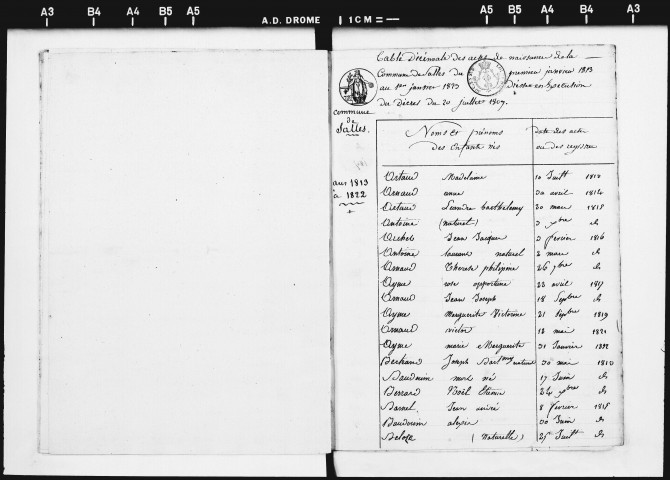 A3 B4 A4 B5 A5 A.D. DROME 1 CM = A5 B5 A4 B4 A3
Table Décennale des actes de naissance de la
Commune de Salles du premier janvier 1813
au 1er janvier 1823 Dressée en Exécution
du Décret du 20 juillet 1807.
Commune
de
Salles.
ans 1813
à 1822
Noms et prénoms
des Enfants nés
date des actes
Artaud Madelaine 10 Juillt 1813
Arnaud anne 30 avril 1814
Artaud Leandre barthelemy 30 mars 1815
Antoine (naturel) 9bre ds
Jean Jacques 5 février 1816
Antoine laurans naturel 2 mars ds
Arnaud Therese philipine 26 9bre ds
Ayme rose opportune 23 avril 1817
Arnaud Jean Joseph 18 Septbre ds
Ayme Marguerite Victorine 21 Septbre 1819
Arnaud victor 12 mai 1821
Ayme marie Marguerite 31 Janvier 1822
Bertrand Joseph Barthmy naturel 30 mai 1813
Baudouin mort né 17 Juin ds
Bernard Noël Etienne 24 xbre ds
Jean 8 février 1815
Baudouin alexis 30 Juin ds
(Naturelle) 25 Juillt ds